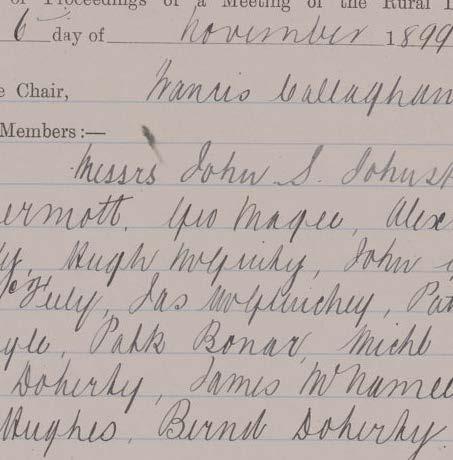 of Proceedings of a Meeting of the Rural D
6 day of November 1899
e Chair, Francis Callaghan
Members:—
Messrs John S. Johnst
ermott, Geo Magee, Alex
Hugh McGinty, John
Feely, Jas McGlinchey, Pat
yle, Patk Bonar, Michl
Doherty, James McNamee
Hughes, Bernd Doherty